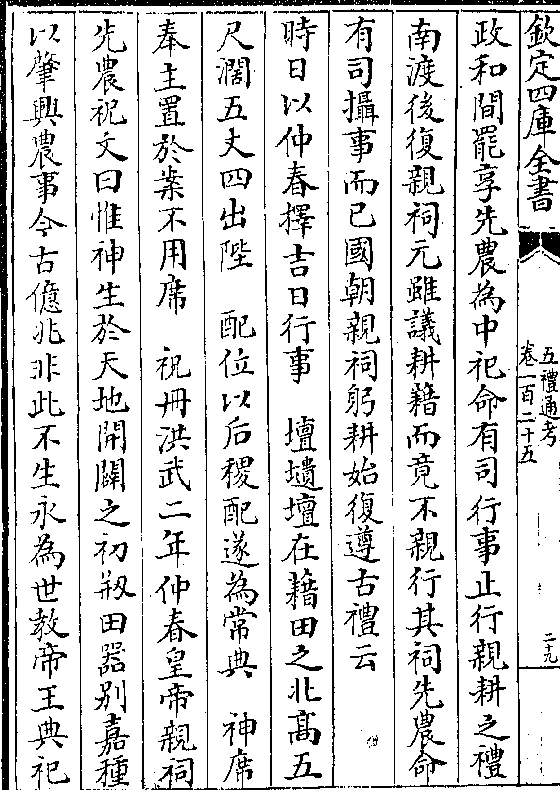 欽定四庫全書
五禮通考
卷一百二十五
二十九
政和間罷享先農為中祀命有司行事止行親耕之禮
南渡後復親祠元雖議耕藉而竟不親行其祠先農命
有司攝事而已國朝親祠躬耕始復遵古禮云
時日以仲春擇吉日行事　壇壝壇在藉田之北高五
尺濶五丈四出陛　配位以后稷配遂為常典　神席
奉主置於案不用席　祝冊洪武二年仲春皇帝親祠
先農祝文曰惟神生於天地開闢之初剏田器別嘉種
以肇興農事今古億兆非此不生永為世教帝王典祀